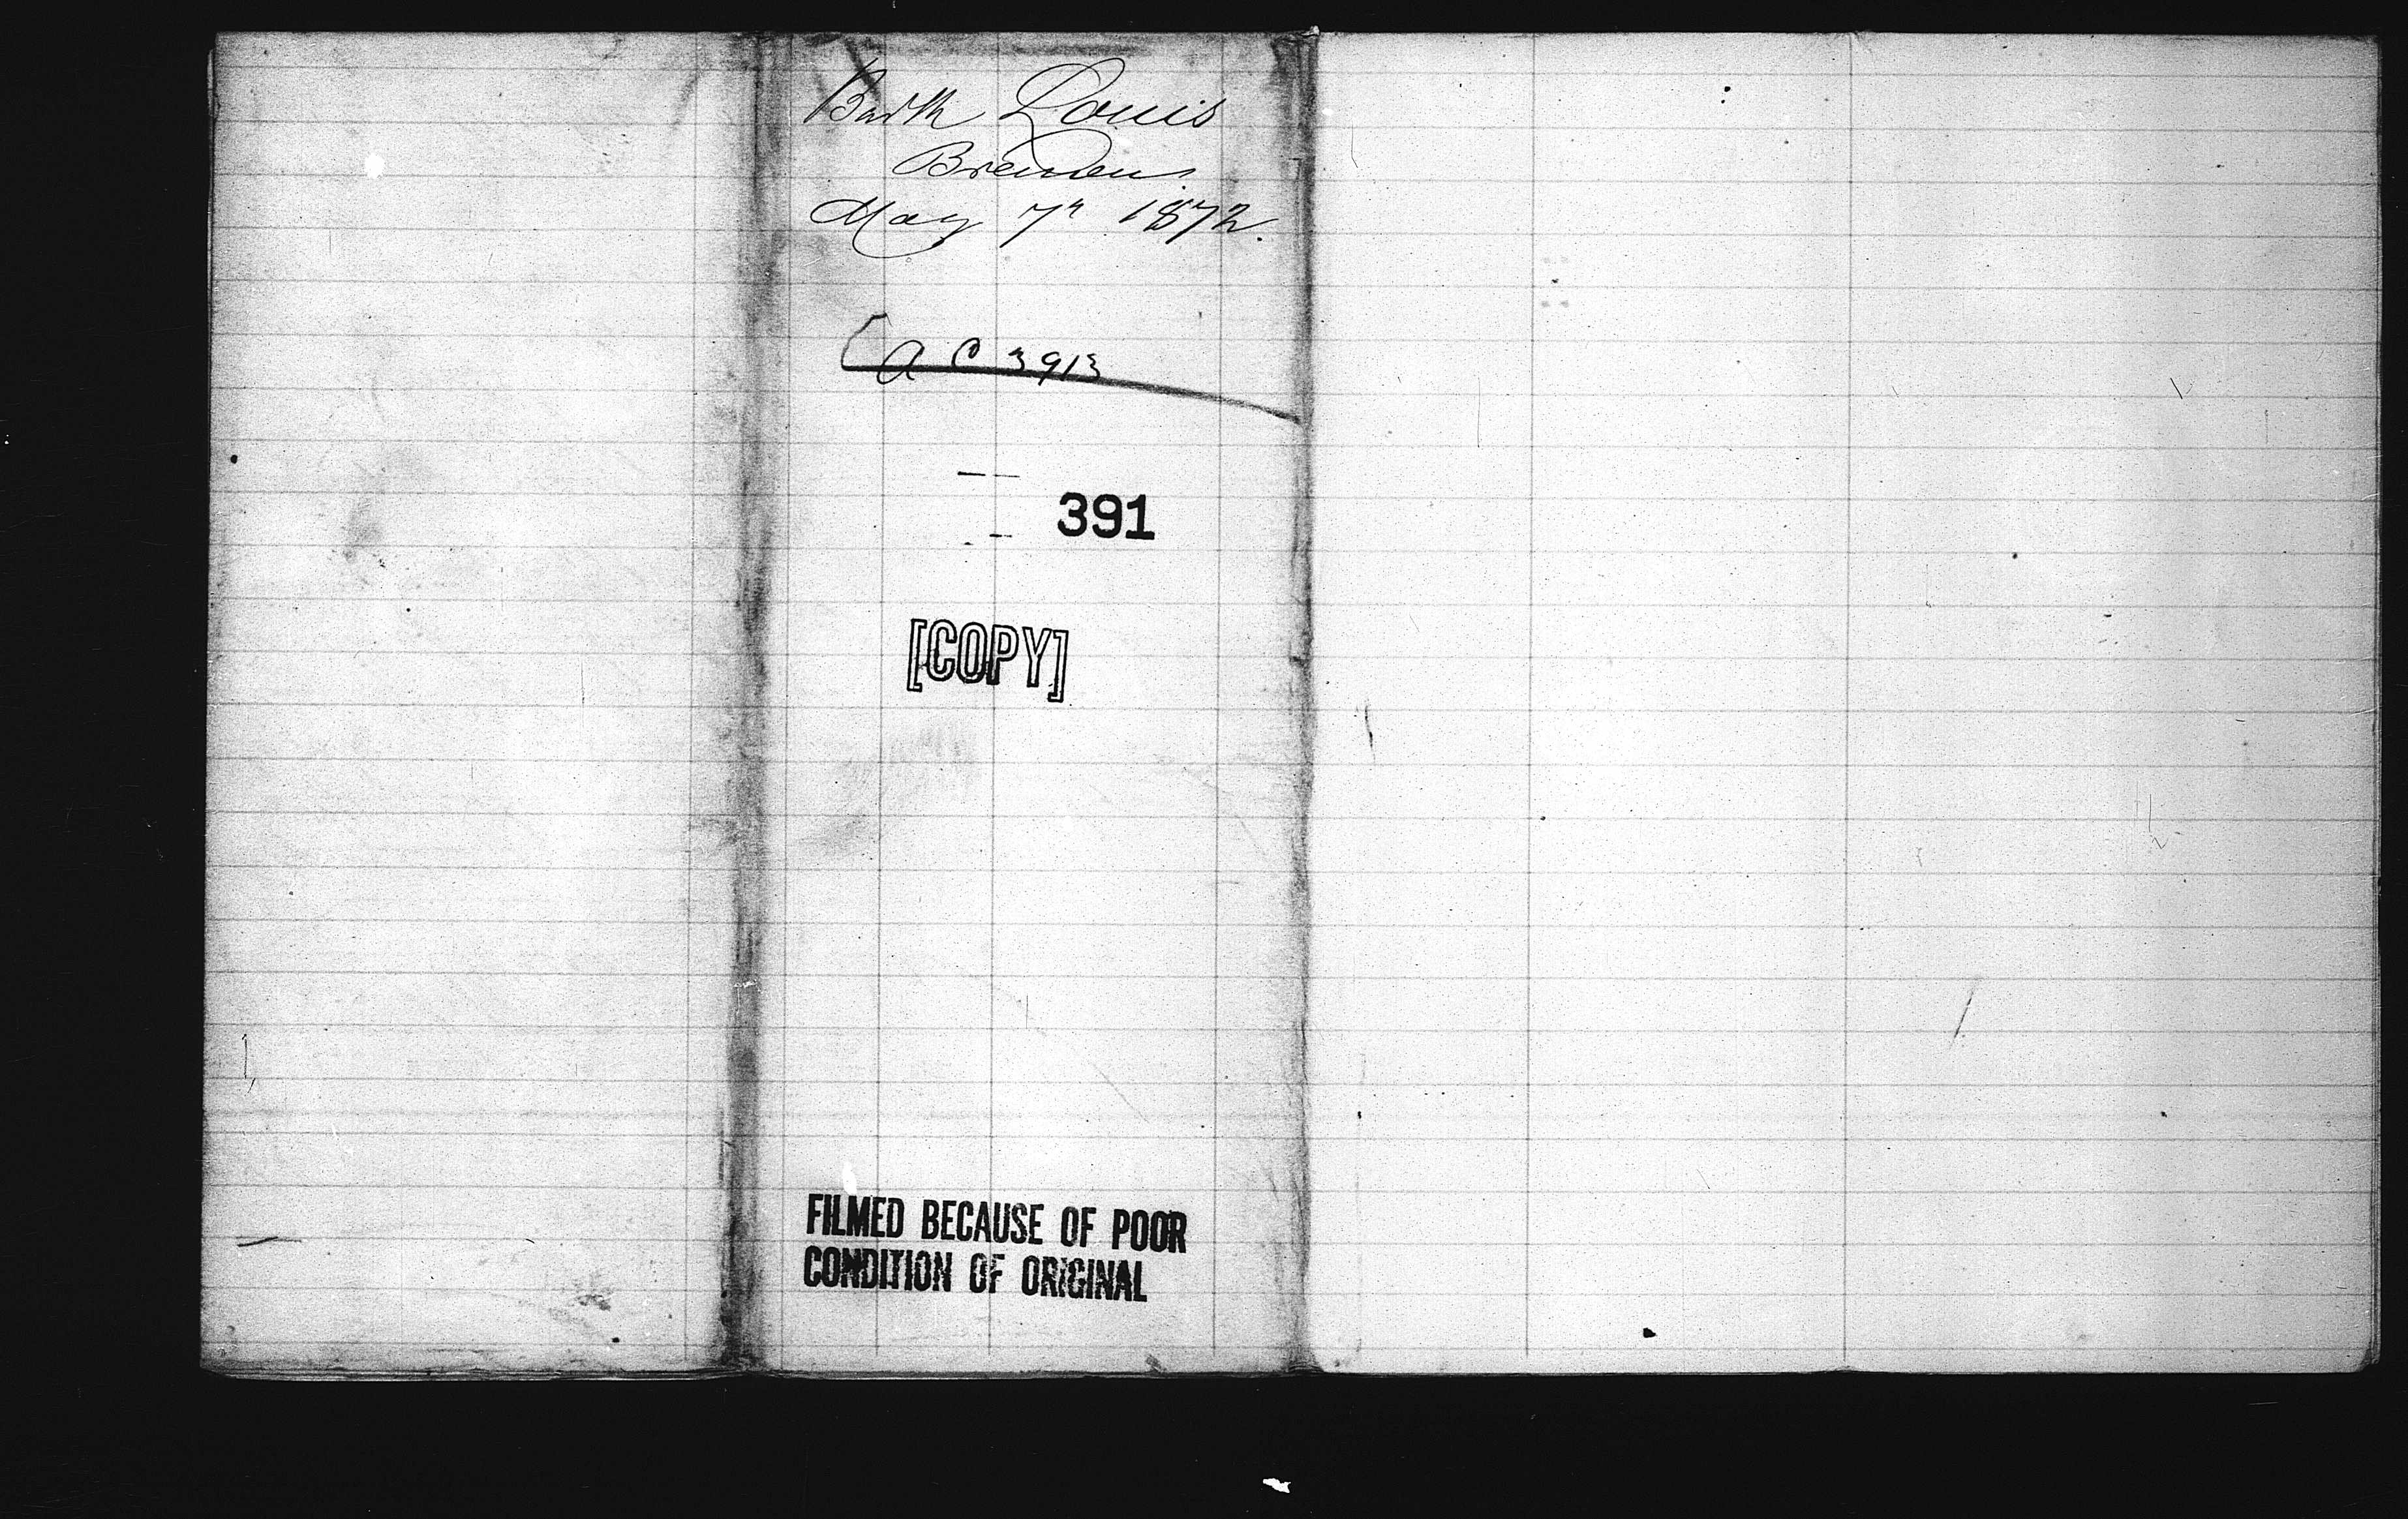 Barth Louis
Bremen
May 7" 1872.
A C 3913
391
[COPY]
FILMED BECAUSE OF POOR
CONDITION OF ORIGINAL